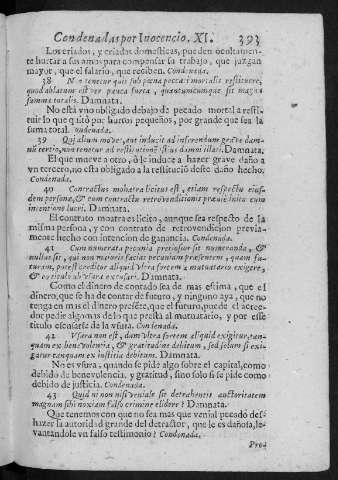 Condenadas por Inocencio. XI. 393
Los criados, y criadas domesticas, pueden ocultamen-
te hurtar a sus amos para compensar su trabajo, que juzgan
mayor, que el salario, que reciben. Condenada.
38 Non tenetur quis sub pœna peccati mortalis restituere,
quod ablatum est per pauca furta, quantumcumque sit magna
summa totalis. Damnata.
No está vno obligado debajo de pecado mortal a resti-
tuir lo que quitó por hurtos pequeños, por grande que sea la
suma total.
39 Qui alium movet, aut inducit ad inferendum grave dam-
nũ tertio, non tenetur ad restitutionẽ istius damni illati. Damnata.
El que mueve a otro, ò le induce a hazer grave daño a
vn tercero, no esta obligado a la restituciõ deste daño hecho.
Condenada.
40 Contractus mohatra licitus est, etiam respectu eius-
dem personæ, & cum contractu retrovenditionis prævie inito cum
intentione lucri. Damnata.
El contrato moatra es licito, aunque sea respecto de la
misma persona, y con contrato de retrovendicion previa-
mente hecho con intencion de ganancia. Condenada.
41 Cum numerata pecunia pretiosior sit numeranda, &
nullus sit, qui non maioris faciat pecuniam præsentem, quam fu-
turam, potest creditor aliquid vltra sortem à mutuatario exigere,
& eo titulo ab vsura excusari. Damnata.
Como el dinero de contado sea de mas estima, que el
dinero, que se ha de contar de futuro, y ninguno aya, que no
tenga en mas el dinero presẽte, que el futuro, puede el acree-
dor pedir algo mas de lo que prestà al mutuatario, y por esse
titulo escusarse de la vsura. Condenada.
42 Vsura non est, dum vltra sortem aliquid exigitur, tan-
quam ex benevolentia, & gratitudine debitum, sed solum si exi-
gatur tanquam ex iustitia debitum. Damnata.
No es vsura, quando se pide algo sobre el capital, como
debido de benevolencia, y gratitud, sino solo si se pide como
debido de justicia. Condenada.
43 Quid ni non nisi veniale sit detrahentis auctoritatem
magnam sibi noxiam falso crimine elidere? Damnata.
Que tenemos con que no sea mas que venial pecado des-
hazer la autoridad grande del detractor, que le es dañosa, le-
vantandole vn falso testimonio? Condenada.